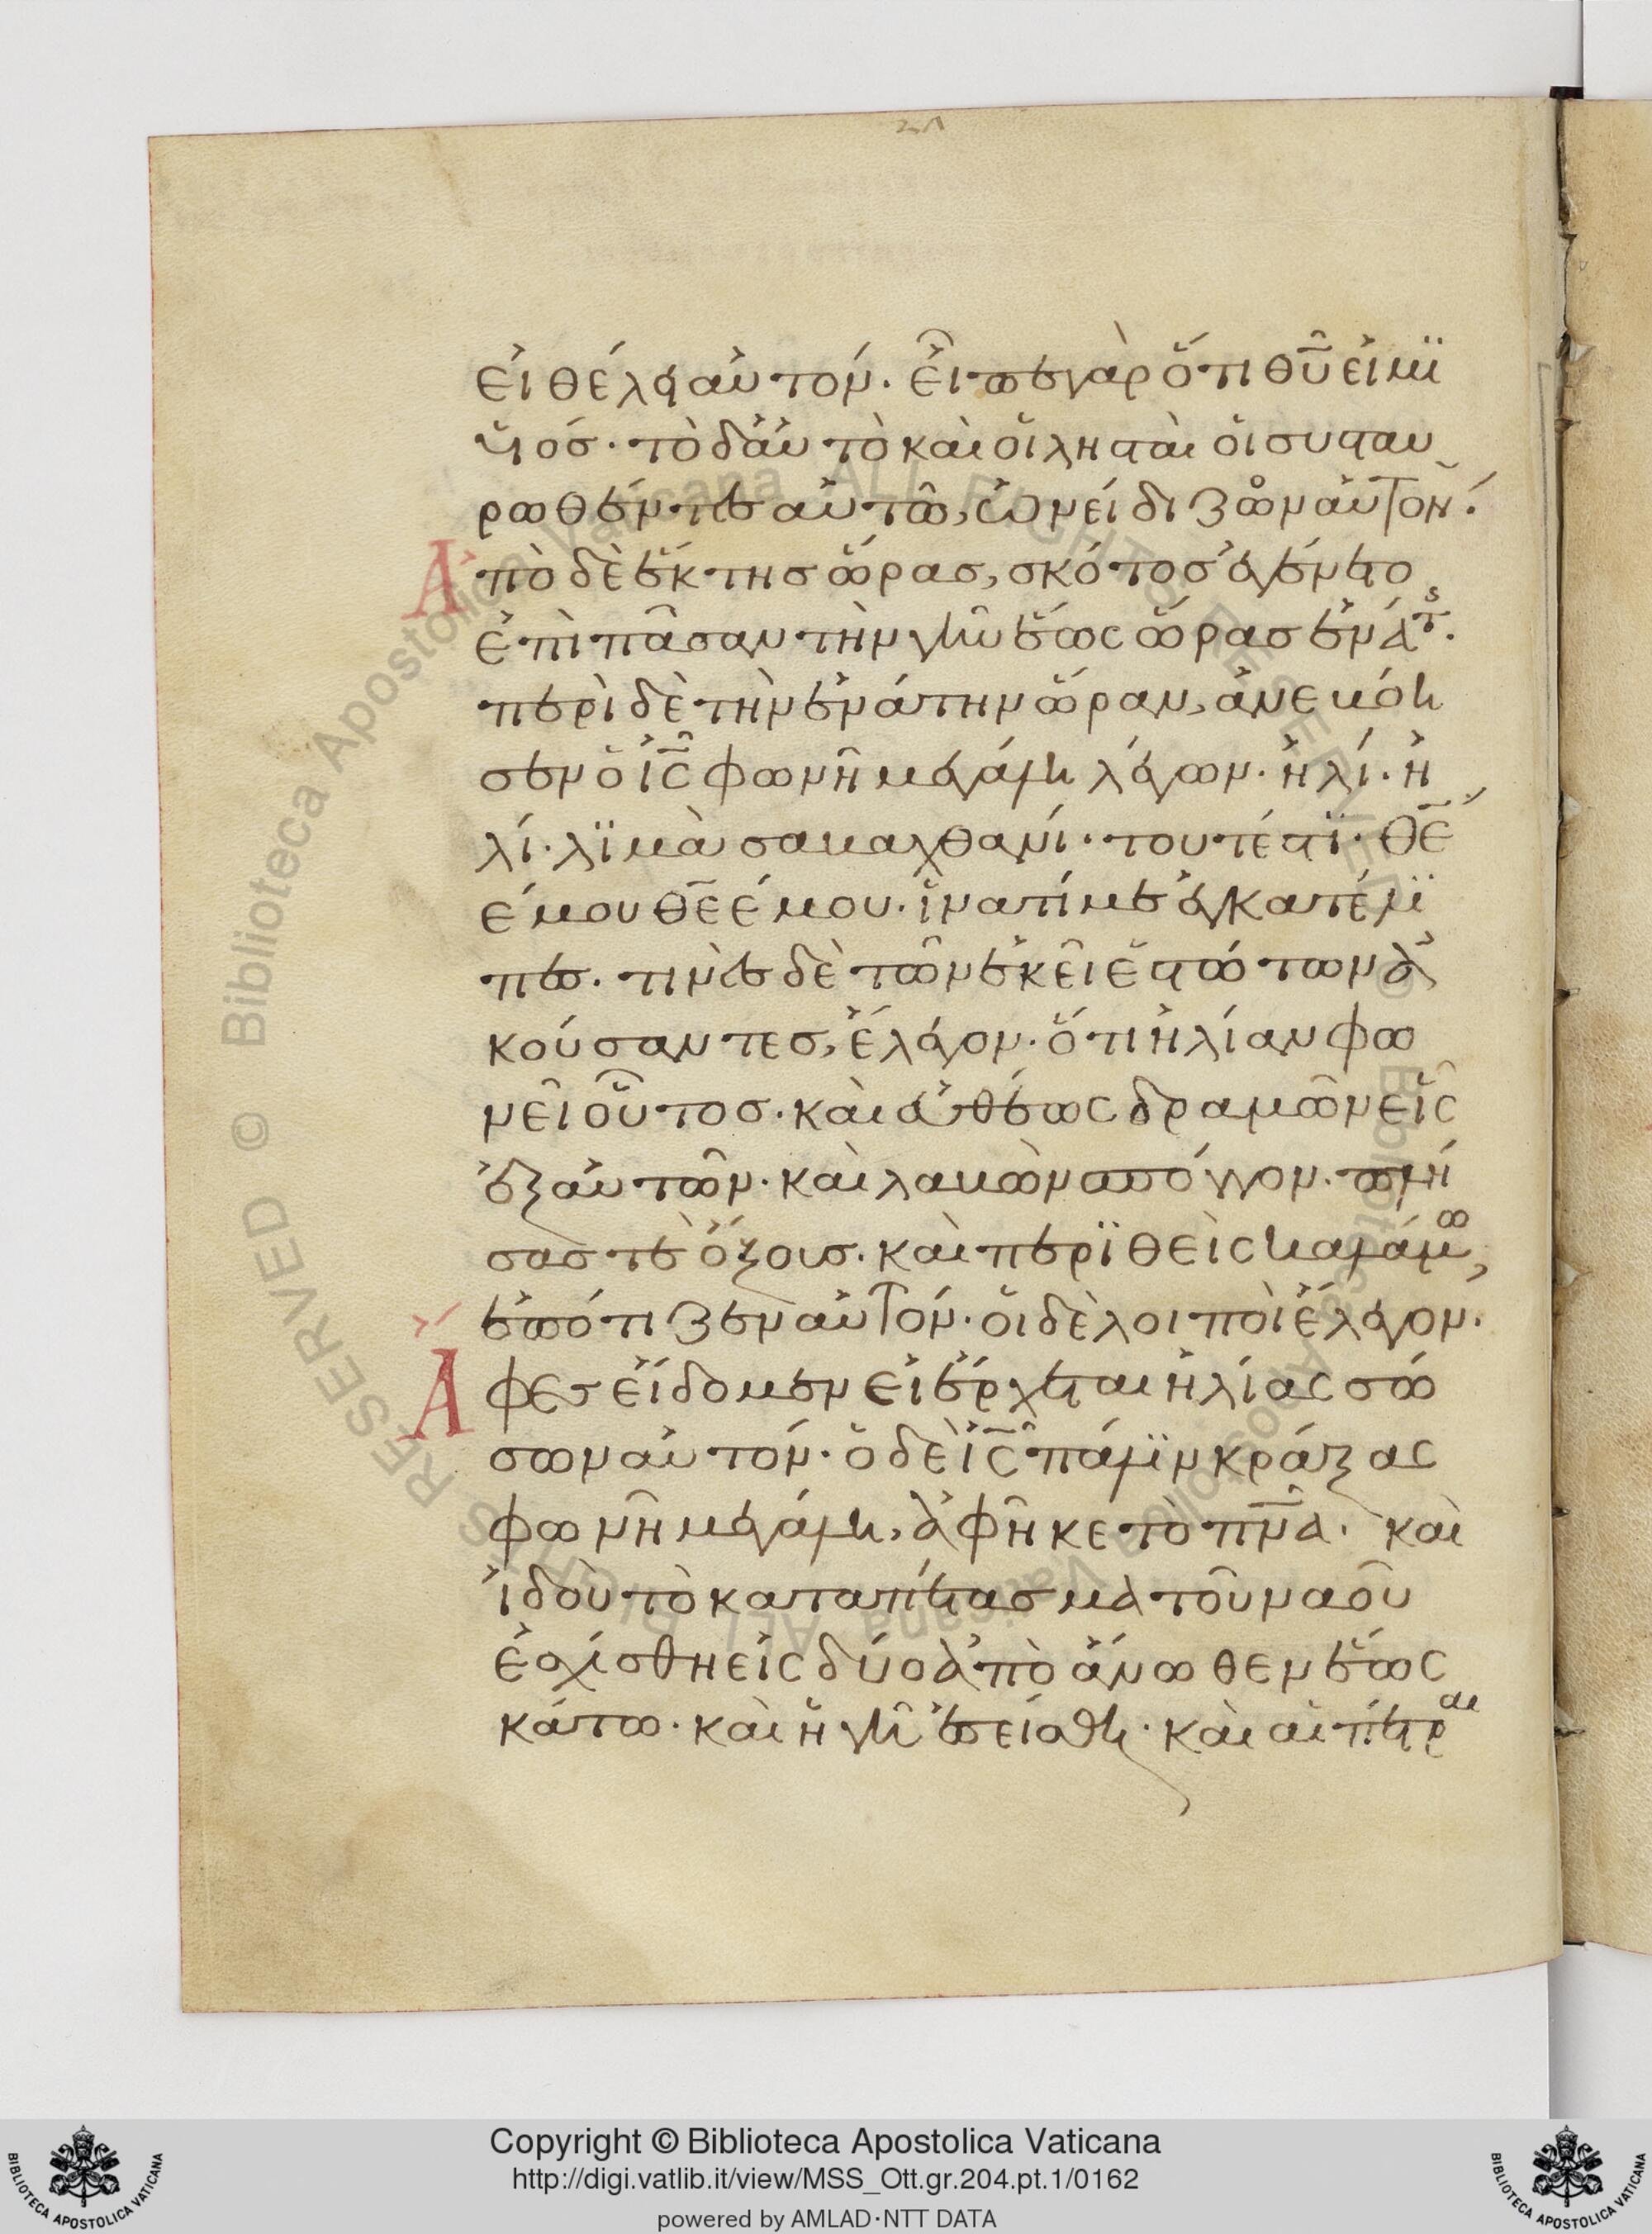 εἰ θέλει αὐτόν· εἶπε γὰρ ὅτι θῦ εἰμϊ
υἱός· τὸ δ᾽ αὐτὸ καὶ οἱ λησταὶ οἱ συσταυ
ρωθέντες αὐτῶ, ὠνείδιζον αὐτόν·
Ἀπὸ δὲ ἕκτης ὥρας, σκότος ἐγένετο
ἐπὶ πᾶσαν τὴν γῆν ἕως ὥρας ἐνάτ·
περὶ δὲ τὴν ἐνάτην ὥραν, ἀνεβόη
σεν ὁ ἰς φωνῆ μεγάλη λέγων· ἠλί· ἠ
λί· λϊμὰ σαβαχθανί· τουτέστϊ· θέ
έ μου θεέ μου· ἵνα τί με ἐγκατέλϊ
πες· τινὲς δὲ τῶν ἐκεῖ ἑστώτων ἀ
κούσαντες, ἔλεγον· ὅτι ἠλίαν φω
νεῖ οὗτος· καὶ εὐθέως δραμὼν εἷς
ἐξ αὐτῶν· καὶ λαβὼν σπόγγον· πλή
σας τε ὄξους· καὶ περϊθεὶς καλάμω,
ἐπότιζεν αὐτόν· οἱ δὲ λοιποὶ ἔλεγον·
Ἄφες εἴδομεν εἰ ἔρχεται ἠλίας σώ
σων αὐτόν· ὁ δὲ ἰς πάλϊν κράξας
φωνῆ μεγάλη, ἀφῆκε τὸ πνα· καὶ
ἰδοὺ τὸ καταπέτασμα τοῦ ναοῦ
ἐσχίσθη εἰς δύο ἀπὸ ἄνωθεν ἕως
κάτω· καὶ ἡ γῆ ἐσείσθη· καὶ αἱ πέτραι
Copyright © Biblioteca Apostolica Vaticana
http://digi.vatlib.it/view/MSS_Ott.gr.204.pt.1/0162
powered by AMLAD·NTT DATA